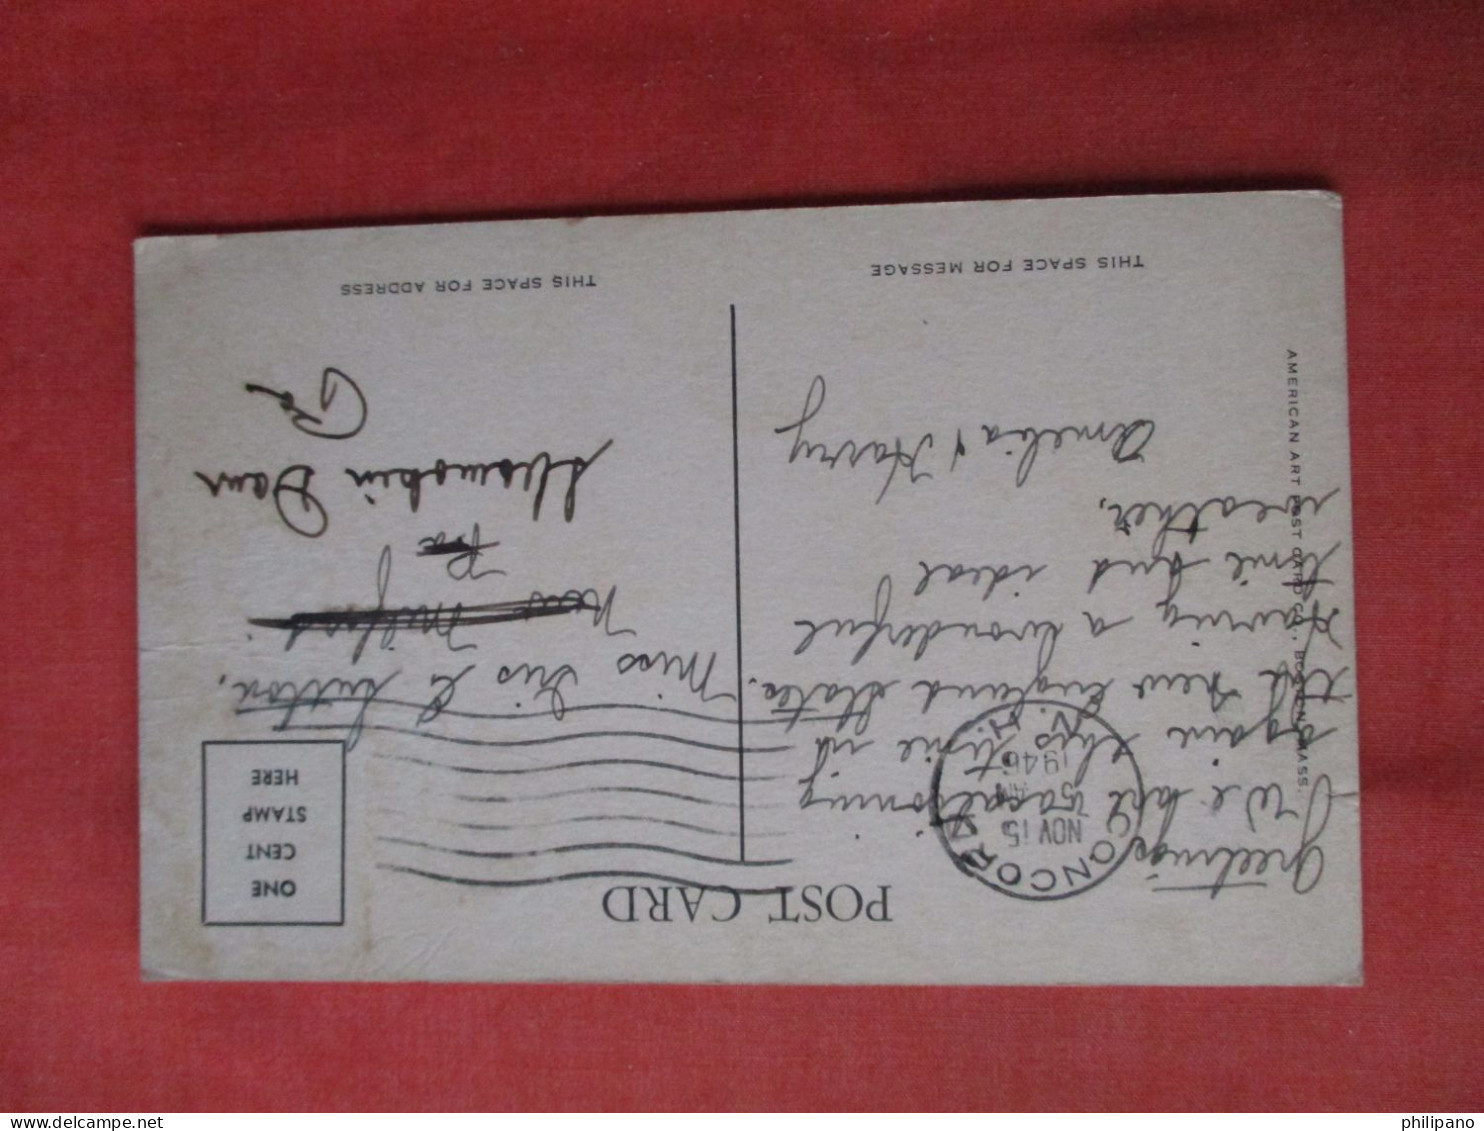 POST CARD
ONE
CENT
STAMP
HERE
CONCORD
NOV 15
5 AM
1946
N. H.
Greetings
We are vacationing
again this time in
the New England States.
Having a wonderful
time and ideal
weather,
Amelia & Harry
THIS SPACE FOR MESSAGE
Miss Iris E
New Milford
Pa
Dam
Pa
THIS SPACE FOR ADDRESS
AMERICAN ART POST CARD CO., BOSTON, MASS.
philipano